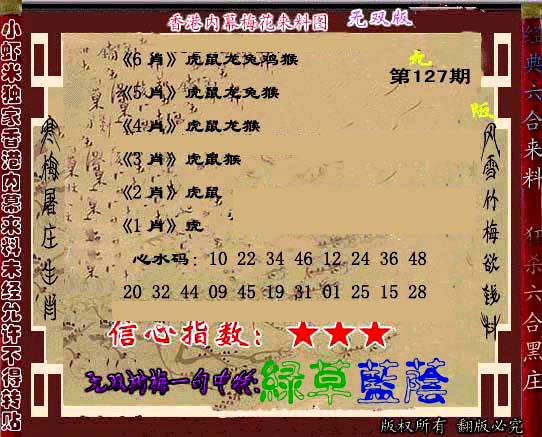 香港内幕梅花来料图 无双版
小虾米独家香港内幕来料未经允许不得转贴
经典六合来料 狂杀六合黑庄
寒梅屠庄生肖
风雪竹梅欲钱料
第127期
《6 肖》虎鼠龙兔鸡猴
《5 肖》虎鼠龙兔猴
《4 肖》虎鼠龙猴
《3 肖》虎鼠猴
《2 肖》虎鼠
《1 肖》虎
心水码：10 22 34 46 12 24 36 48
20 32 44 09 45 19 31 01 25 15 28
信心指数：★★★
一句中特:綠草藍蔭
版权所有 翻版必究